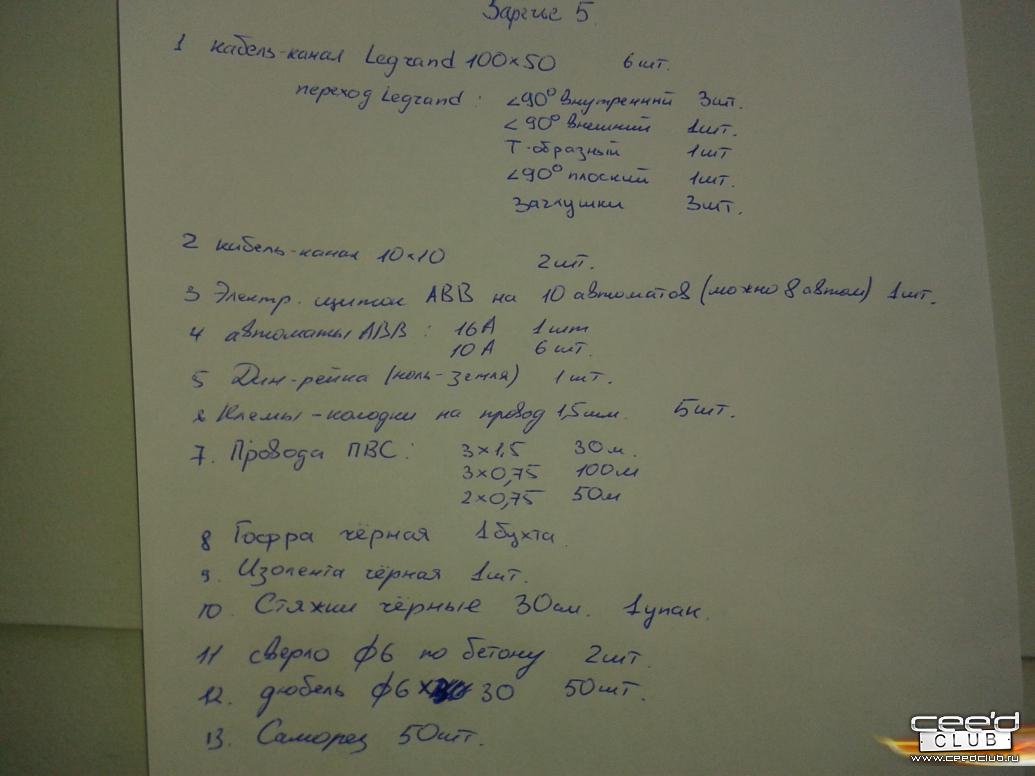 Заргис 5.
1 кабель-канал Legrand 100×50 6 шт.
переход Legrand : <90° внутренний 3шт.
<90° внешний 1шт.
Т-образный 1шт
<90° плоский 1шт.
Заглушки 3шт.
2 кабель-канал 10×10 2шт.
3 Электр. щиток АВВ на 10 автоматов (можно 8 автом) 1шт.
4 автоматы АВВ : 16А 1шт
10А 6 шт.
5 Дин-рейка (ноль-земля) 1 шт.
6 Клемы-колодки на провод 1,5мм. 5шт.
7. Провода ПВС : 3×1,5 30м.
3×0,75 100м
2×0,75 50м
8 Гофра чёрная 1бухта
9. Изолента чёрная 1шт.
10. Стяжки чёрные 30см. 1упак.
11 сверло ф6 по бетону 2шт.
12. дюбель ф6× 30 50шт.
13. Саморез 50шт.
cee'd
CLUB
www.ceedclub.ru